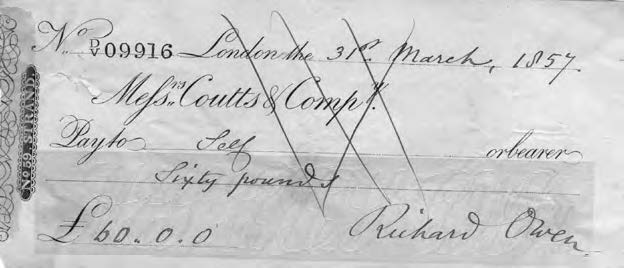 No. D/V 09916 London the 31st. March, 1857.
Messrs. Coutts & Compy.
Pay to Self or bearer
Sixty pounds
£ 60.. 0. 0 Richard Owen.
No. 59. STRAND.